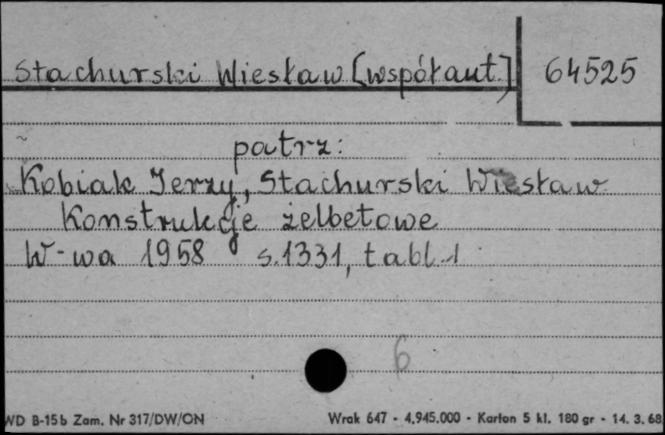 Stachurski Wiesław [współaut.] 64525
patrz:
Kobiak Jerzy, Stachurski Wiesław
Konstrukcje żelbetowe
W-wa 1958 s.1331, tabl.1
6
WD B-15b Zam. Nr 317/DW/ON Wrak 647 - 4,945.000 - Karton 5 kl. 180 gr - 14. 3. 68